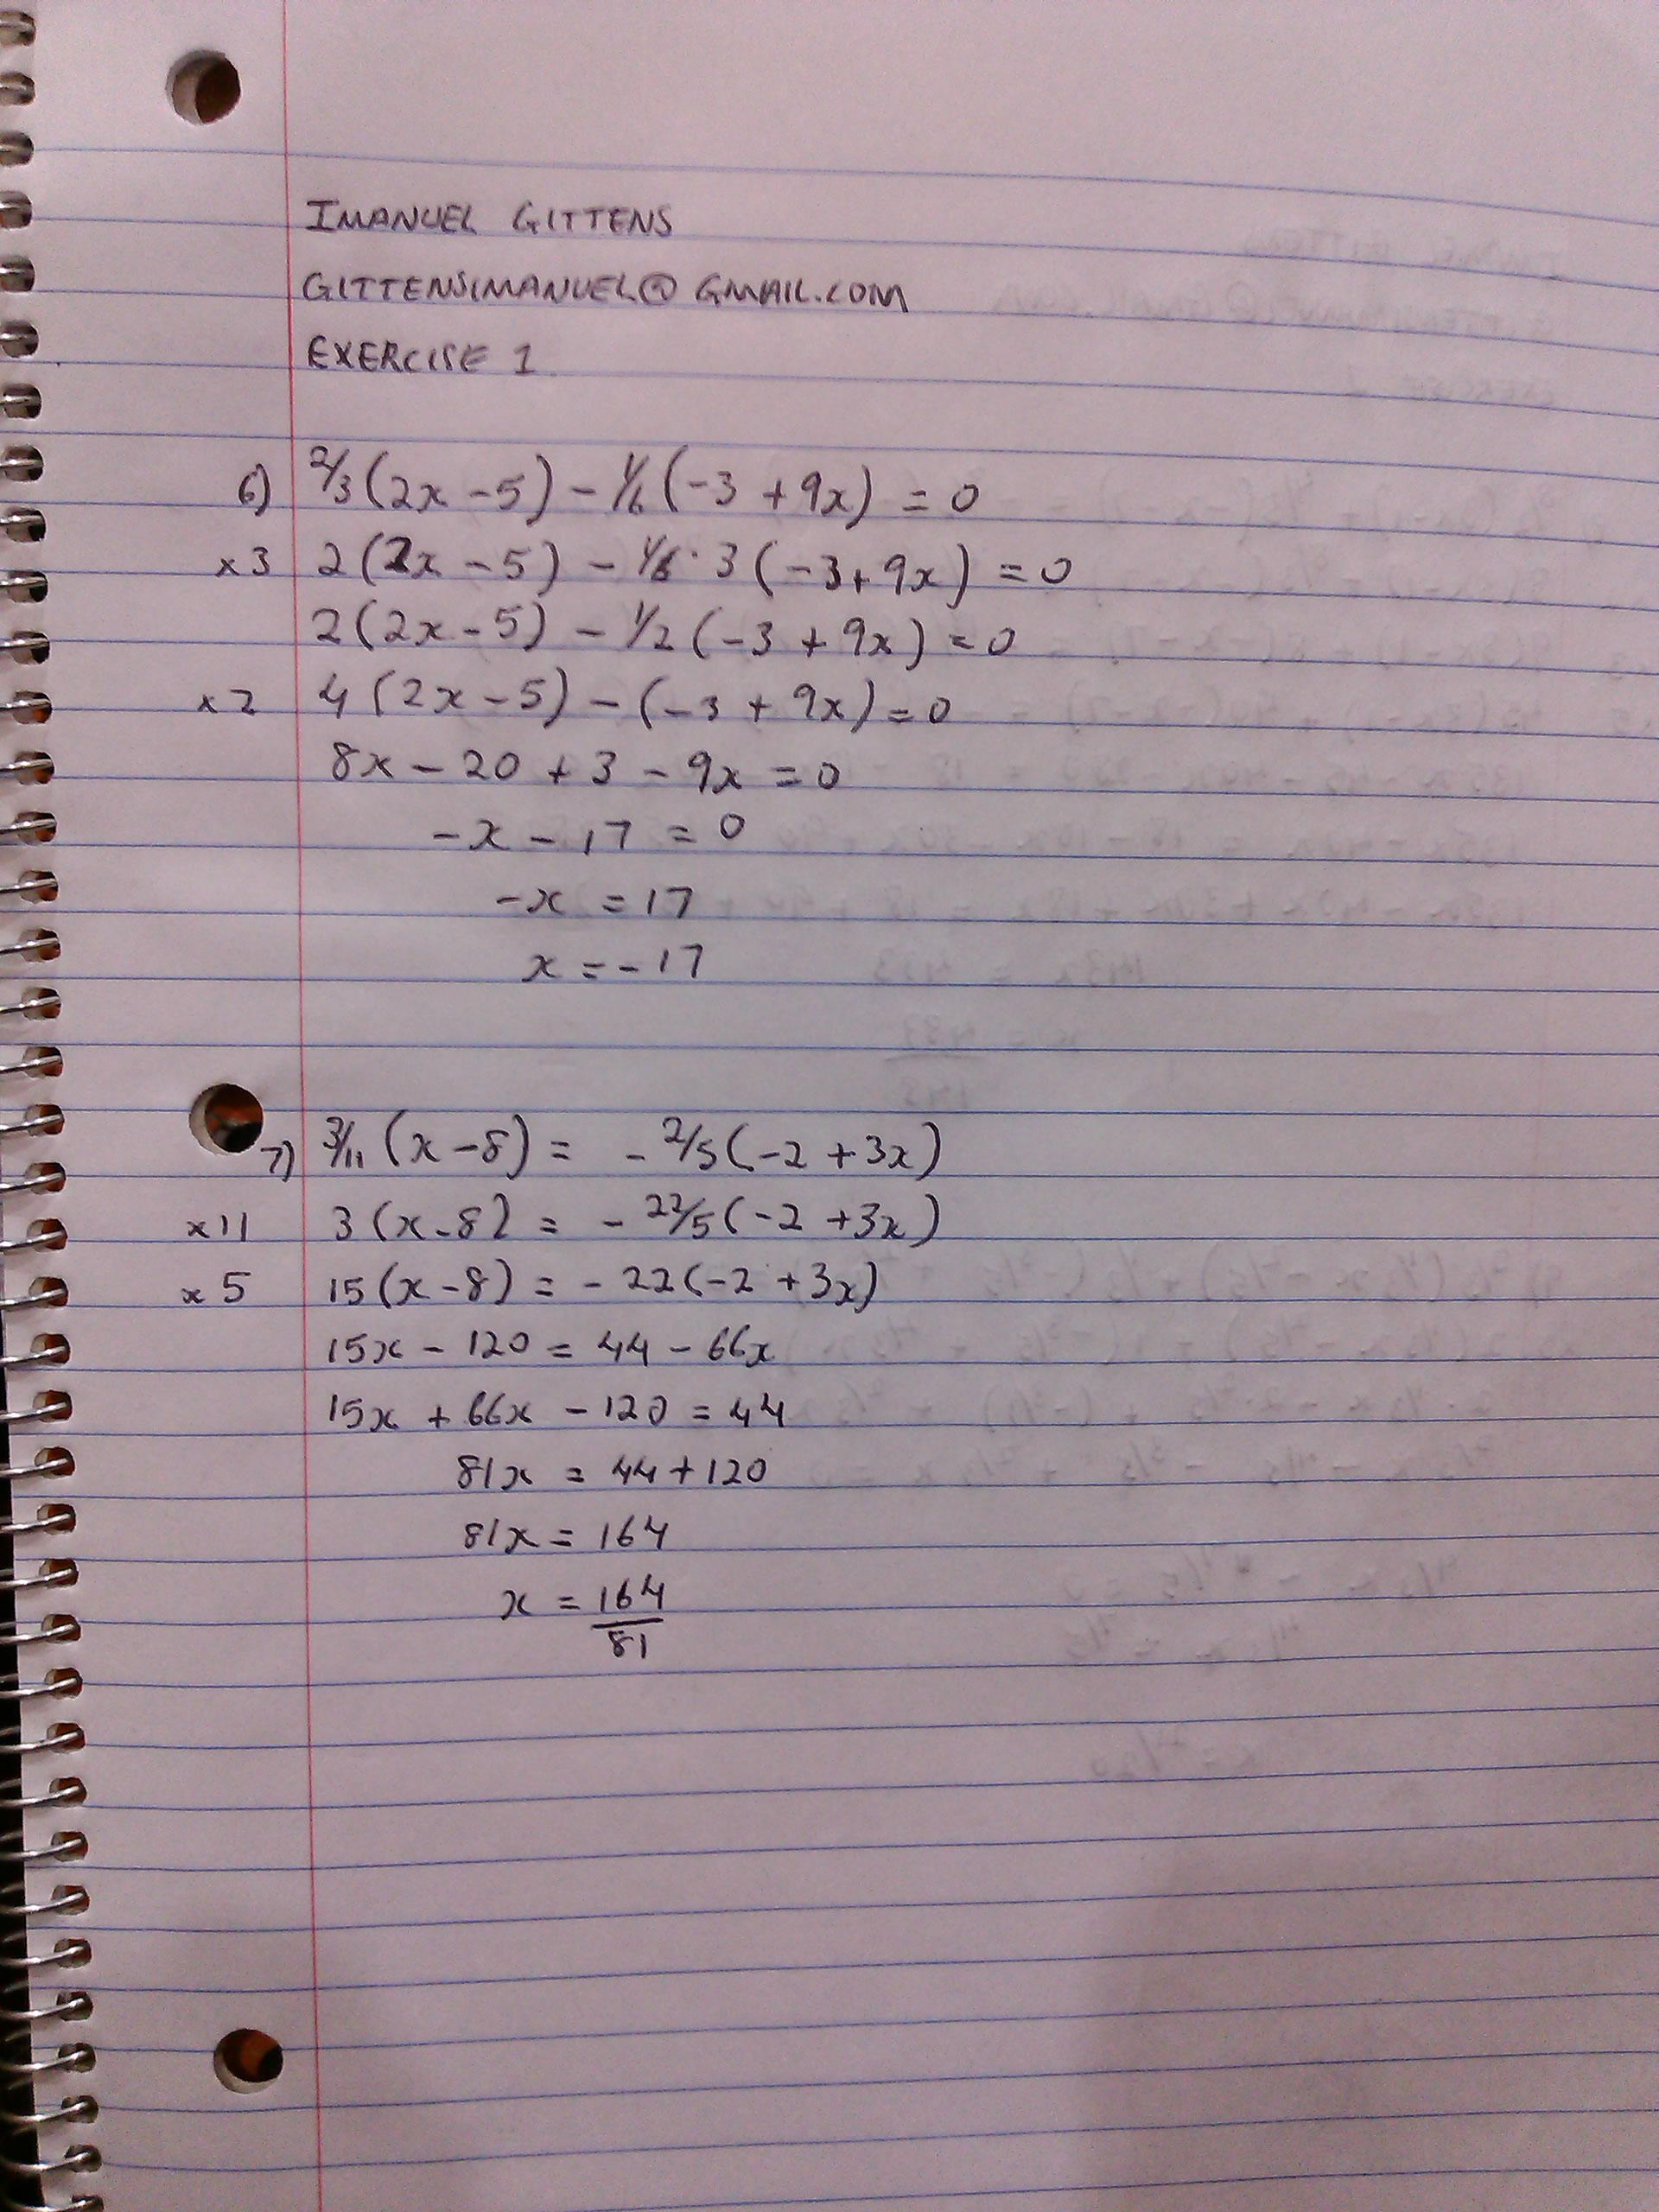 IMANUEL GITTENS
GITTENSIMANUEL@GMAIL.COM
EXERCISE 1
6) 2/3(2x-5) - 1/6(-3 + 9x) = 0
x3 2(2x - 5) - 1/6 · 3(-3 + 9x) = 0
2(2x - 5) - 1/2(-3 + 9x) = 0
x2 4(2x - 5) - (-3 + 9x) = 0
8x - 20 + 3 - 9x = 0
-x - 17 = 0
-x = 17
x = -17
7) 3/11(x - 8) = - 2/5(-2 + 3x)
x11 3(x - 8) = - 22/5(-2 + 3x)
x5 15(x - 8) = - 22(-2 + 3x)
15x - 120 = 44 - 66x
15x + 66x - 120 = 44
81x = 44 + 120
81x = 164
x = 164
81